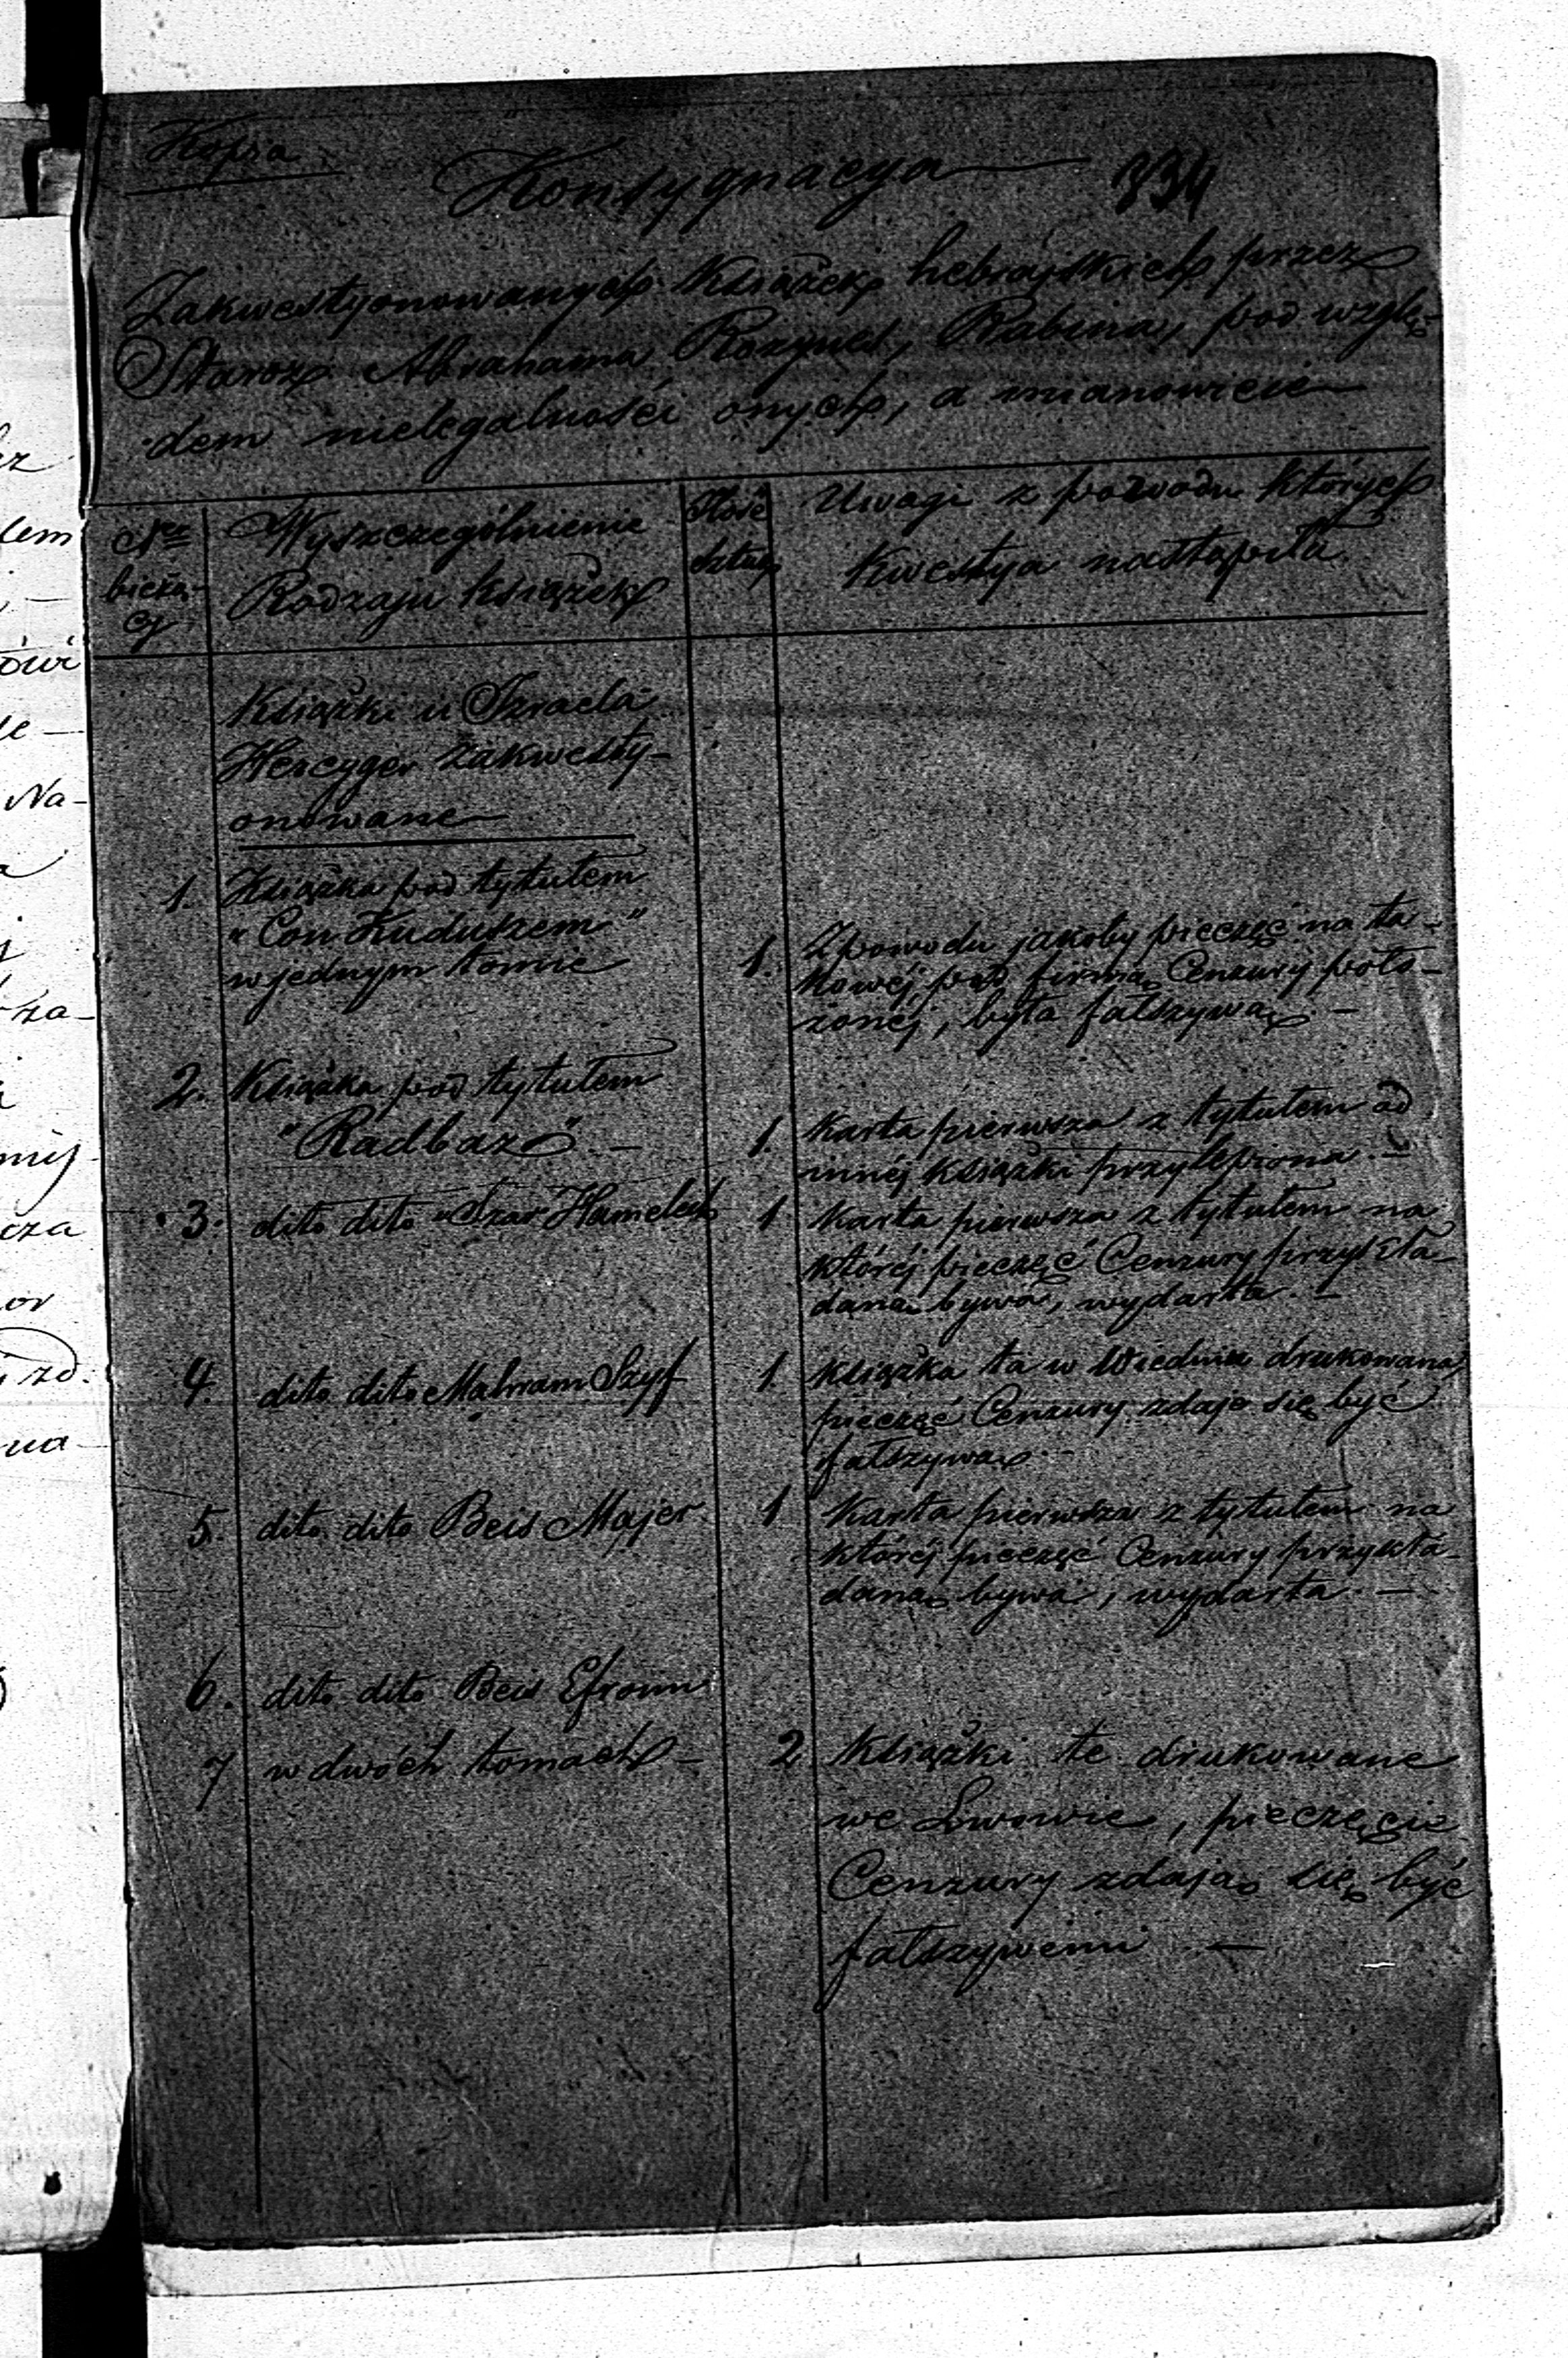 Kopia.
Konsygnacya 334
Zakwestyonowanych Książek hebrajskich przez
Staroz. Abrahama Rozynes, Rabina, pod wzglę-
dem nielegalności onych, a mianowicie
Nr
bieżą-
cy
Wyszczególnienie
Rodzaju książek
Ilość
sztuk
Uwagi z powodu których
Kwestya nastąpiła
Książki u Izraela
Hercyger zakwesty-
onowane
1. Książka pod tytułem
"Con Kuduszem"
w jednym tomie
1. Z powodu jakoby pieczęć na ta-
kowéj, pod firmą Cenzury poło-
żonéj, była fałszywą. —
2. Książka pod tytułem
"Radbaz" —
1. Karta pierwsza z tytułem od
innéj książki przylepiona. —
3. dito dito "Szar Hamelech
1 Karta pierwsza z tytułem na
któréj pieczęć Cenzury przykła-
daną bywa, wydarta. —
4. dito dito Mahram Szyf
1. Książka ta w Wiedniu drukowana,
pieczęć Cenzury zdaje się być
fałszywą —
5. dito dito Beis Majer
1 Karta pierwsza z tytułem na
któréj pieczęć Cenzury przykła-
daną bywa, wydarta. —
6. dito dito Beis Efroim
7 w dwóch tomach —
2 Książki te drukowane
we Lwowie, pieczęcie
Cenzury zdają się być
fałszywemi. —